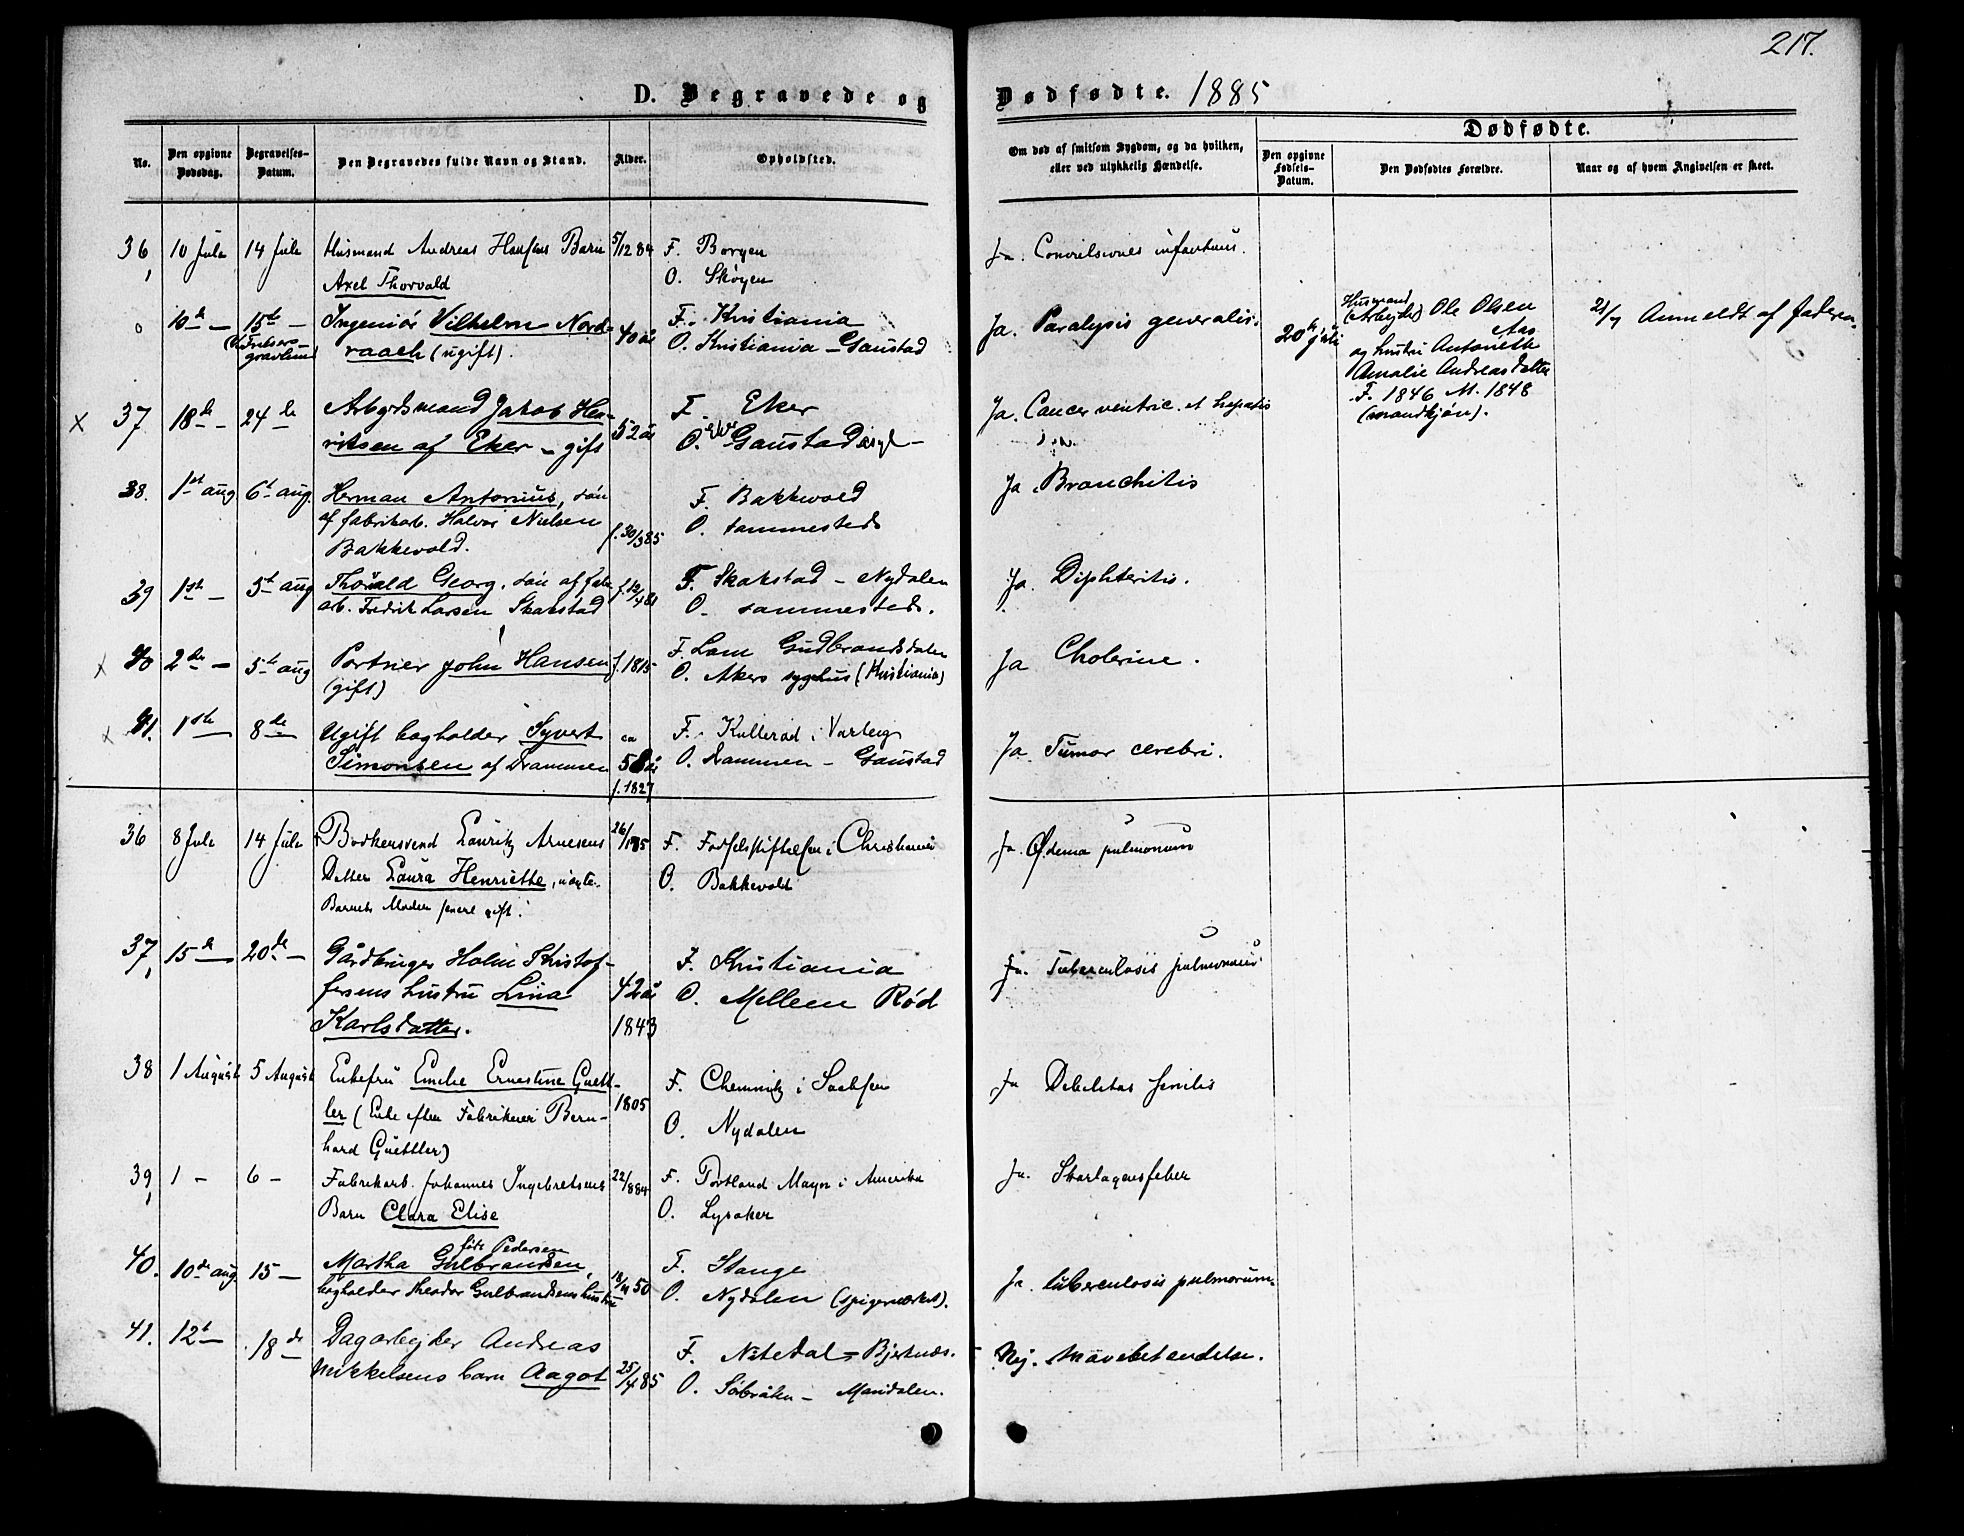 217.
D. Begravede og Dødfødte. 1885
No.
Den opgivne Dødsdag.
Begravelses-Datum.
Den Begravedes fulde Navn og Stand.
Alder.
Opholdsted.
Om død af smitsom Sygdom, og da hvilken, eller ved ulykkelig Hændelse.
Dødfødte.
Den opgivne Fødsels-Datum.
Den Dødfødtes Forældre.
Naar og af hvem Angivelsen er skeet.
36, 10 Juli 14 Juli Husmand Andreas Hansens Barn 5/12 84 F. Borgen Ja. Convulsiones infantum.
Axel Thorvald O. Skøyen
10de – 15de – Ingeniør Vilhelm Nord- 40 år F. Kristiania Ja. Paralysis generalis.
(Vor Frelsers gravlund raach (ugift). O. Kristiania – Gaustad
20de juli
Husmand
(Arbejder) Ole Olsen
Aas
og hustru Antonette
Amalie Andreasdatter
F. 1846 M. 1848
(mandkjøn).
21/7 Anmeldt af faderen.
x 37 18de – 24de Arbejdsmand Jakob Hen- 52 år F. Eker Ja. Cancer ventric. et hepatis
riksen af Eker – gift O. Eker Gaustad asyl –
38. 1st aug 6t aug. Herman Antonius, søn F. Bakkevold Ja. Bronchitis
af fabrikarb. Halvor Nielsen f. 30/3 85 O. sammesteds
Bakkevold.
39 1ste – 5te aug Thorvald Georg. søn af fabr f. 12/4 81 F. Skarstad – Nydalen Ja. Diphteritis.
arb. Fredrik Larsen Skarstad O. sammesteds.
x 40 2den – 5te aug Portner John Hansen f. 1815 F. Lom Gudbrandsdalen Ja Cholerine.
(gift) O. Akers sygehus (Kristiania)
x 41. 1ste 8de Ugift bogholder Syvert ca F. Kullerød i Varteig Ja Tumor cerebri.
Simonsen af Drammen 58 år O. Drammen – Gaustad
f. 1827
36 8 Juli 14 Juli Bødkersvend Lauritz Arnesens 26/1 85 F. Fødselsstiftelsen i Christiania Ja. Ødema pulmonum
Datter Laura Henriette, uægte. O. Bakkevold
Barnets Moder senere gift.
37, 15de 20de – Gårdbruger Holm Kristof- F. Kristiania Ja. Tuberculosis pulmonum
fersens hustru Lina 42 år O. Mellem Rød
Karlsdatter. 1843
38 1 August 5 August Enkefru Emilie Ernestine Guett- 1805 F. Chemnitz i Sachsen Ja Debilitas senilis
ler (Enke efter Fabrikeier Bern- O. Nydalen
hard Guettler)
39, 1 – 6 – Fabrikarb. Johannes Ingebretsens 22/8 84 F. Portland Mayn i Amerika Ja. Skarlagensfeber
Barn Clara Elise O. Lysaker
født Pedersen
40. 10de aug 15 – Martha Gulbrandsen, F. Stange Ja. tuberculosis pulmonum.
bogholder Theodor Gulbrandsens hustru 18/11 50 O. Nydalen (spigerverket).
41. 12te 18de Dagarbejder Andreas F. Nitedal – Bjertnæs. Nej. Mavebetændelse.
Mikkelsens barn Aagot 25/4 85 O. Søbråten – Maridalen.